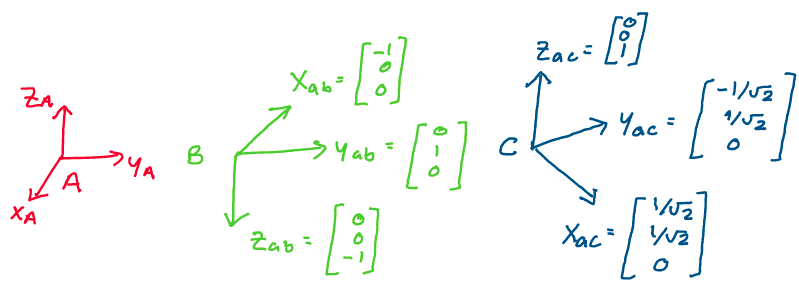 Z_A
A
y_A
x_A
B
x_ab = [-1 0 0]
y_ab = [0 1 0]
z_ab = [0 0 -1]
C
z_ac = [0 0 1]
y_ac = [-1/√2 1/√2 0]
x_ac = [1/√2 1/√2 0]